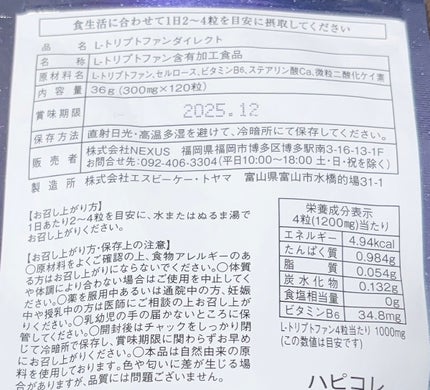 食生活に合わせて1日2〜4粒を目安に摂取してください。
品名 L-トリプトファンダイレクト
名称 L-トリプトファン含有加工食品
原材料名 L-トリプトファン、セルロース、ビタミンB6、ステアリン酸Ca、微粒二酸化ケイ素
内容量 36g(300mg×120粒)
賞味期限 2025.12
保存方法 直射日光・高温多湿を避けて、冷暗所にて保存してください。
販売者 株式会社NEXUS 福岡県福岡市博多区博多駅南3-16-13-1F
お問合せ先:092-406-3304(平日10:00〜18:00 土・日・祝を除く)
製造所 株式会社エスビーケー・トヤマ 富山県富山市水橋的場31-1
【お召し上がり方】
1日あたり2〜4粒を目安に、水またはぬるま湯で
お召し上がりください。
【お召し上がり方・保存上の注意】
○原材料をよくご確認の上、食物アレルギーのあ
る方はお召し上がりにならないでください。○体質
や体調により合わない場合はご使用を中止してく
ださい。○薬を服用中あるいは通院中の方、妊娠
中や授乳中の方は医師にご相談の上お召し上が
りください。○乳幼児の手の届かないところに保
管してください。○開封後はチャックをしっかり閉
じて冷暗所で保存し、賞味期限に関わらずお早め
にお召し上がりください。○本品は自然由来の原
料を使用しております。色や匂いに差が生じる場
合がありますが、品質には問題ございません。
栄養成分表示
4粒(1200mg)当たり
エネルギー 4.94kcal
たんぱく質 0.984g
脂質 0.054g
炭水化物 0.132g
食塩相当量 0g
ビタミンB6 34.8mg
L-トリプトファン4粒当たり 1000mg
(この数値は目安です)
ハピコレ